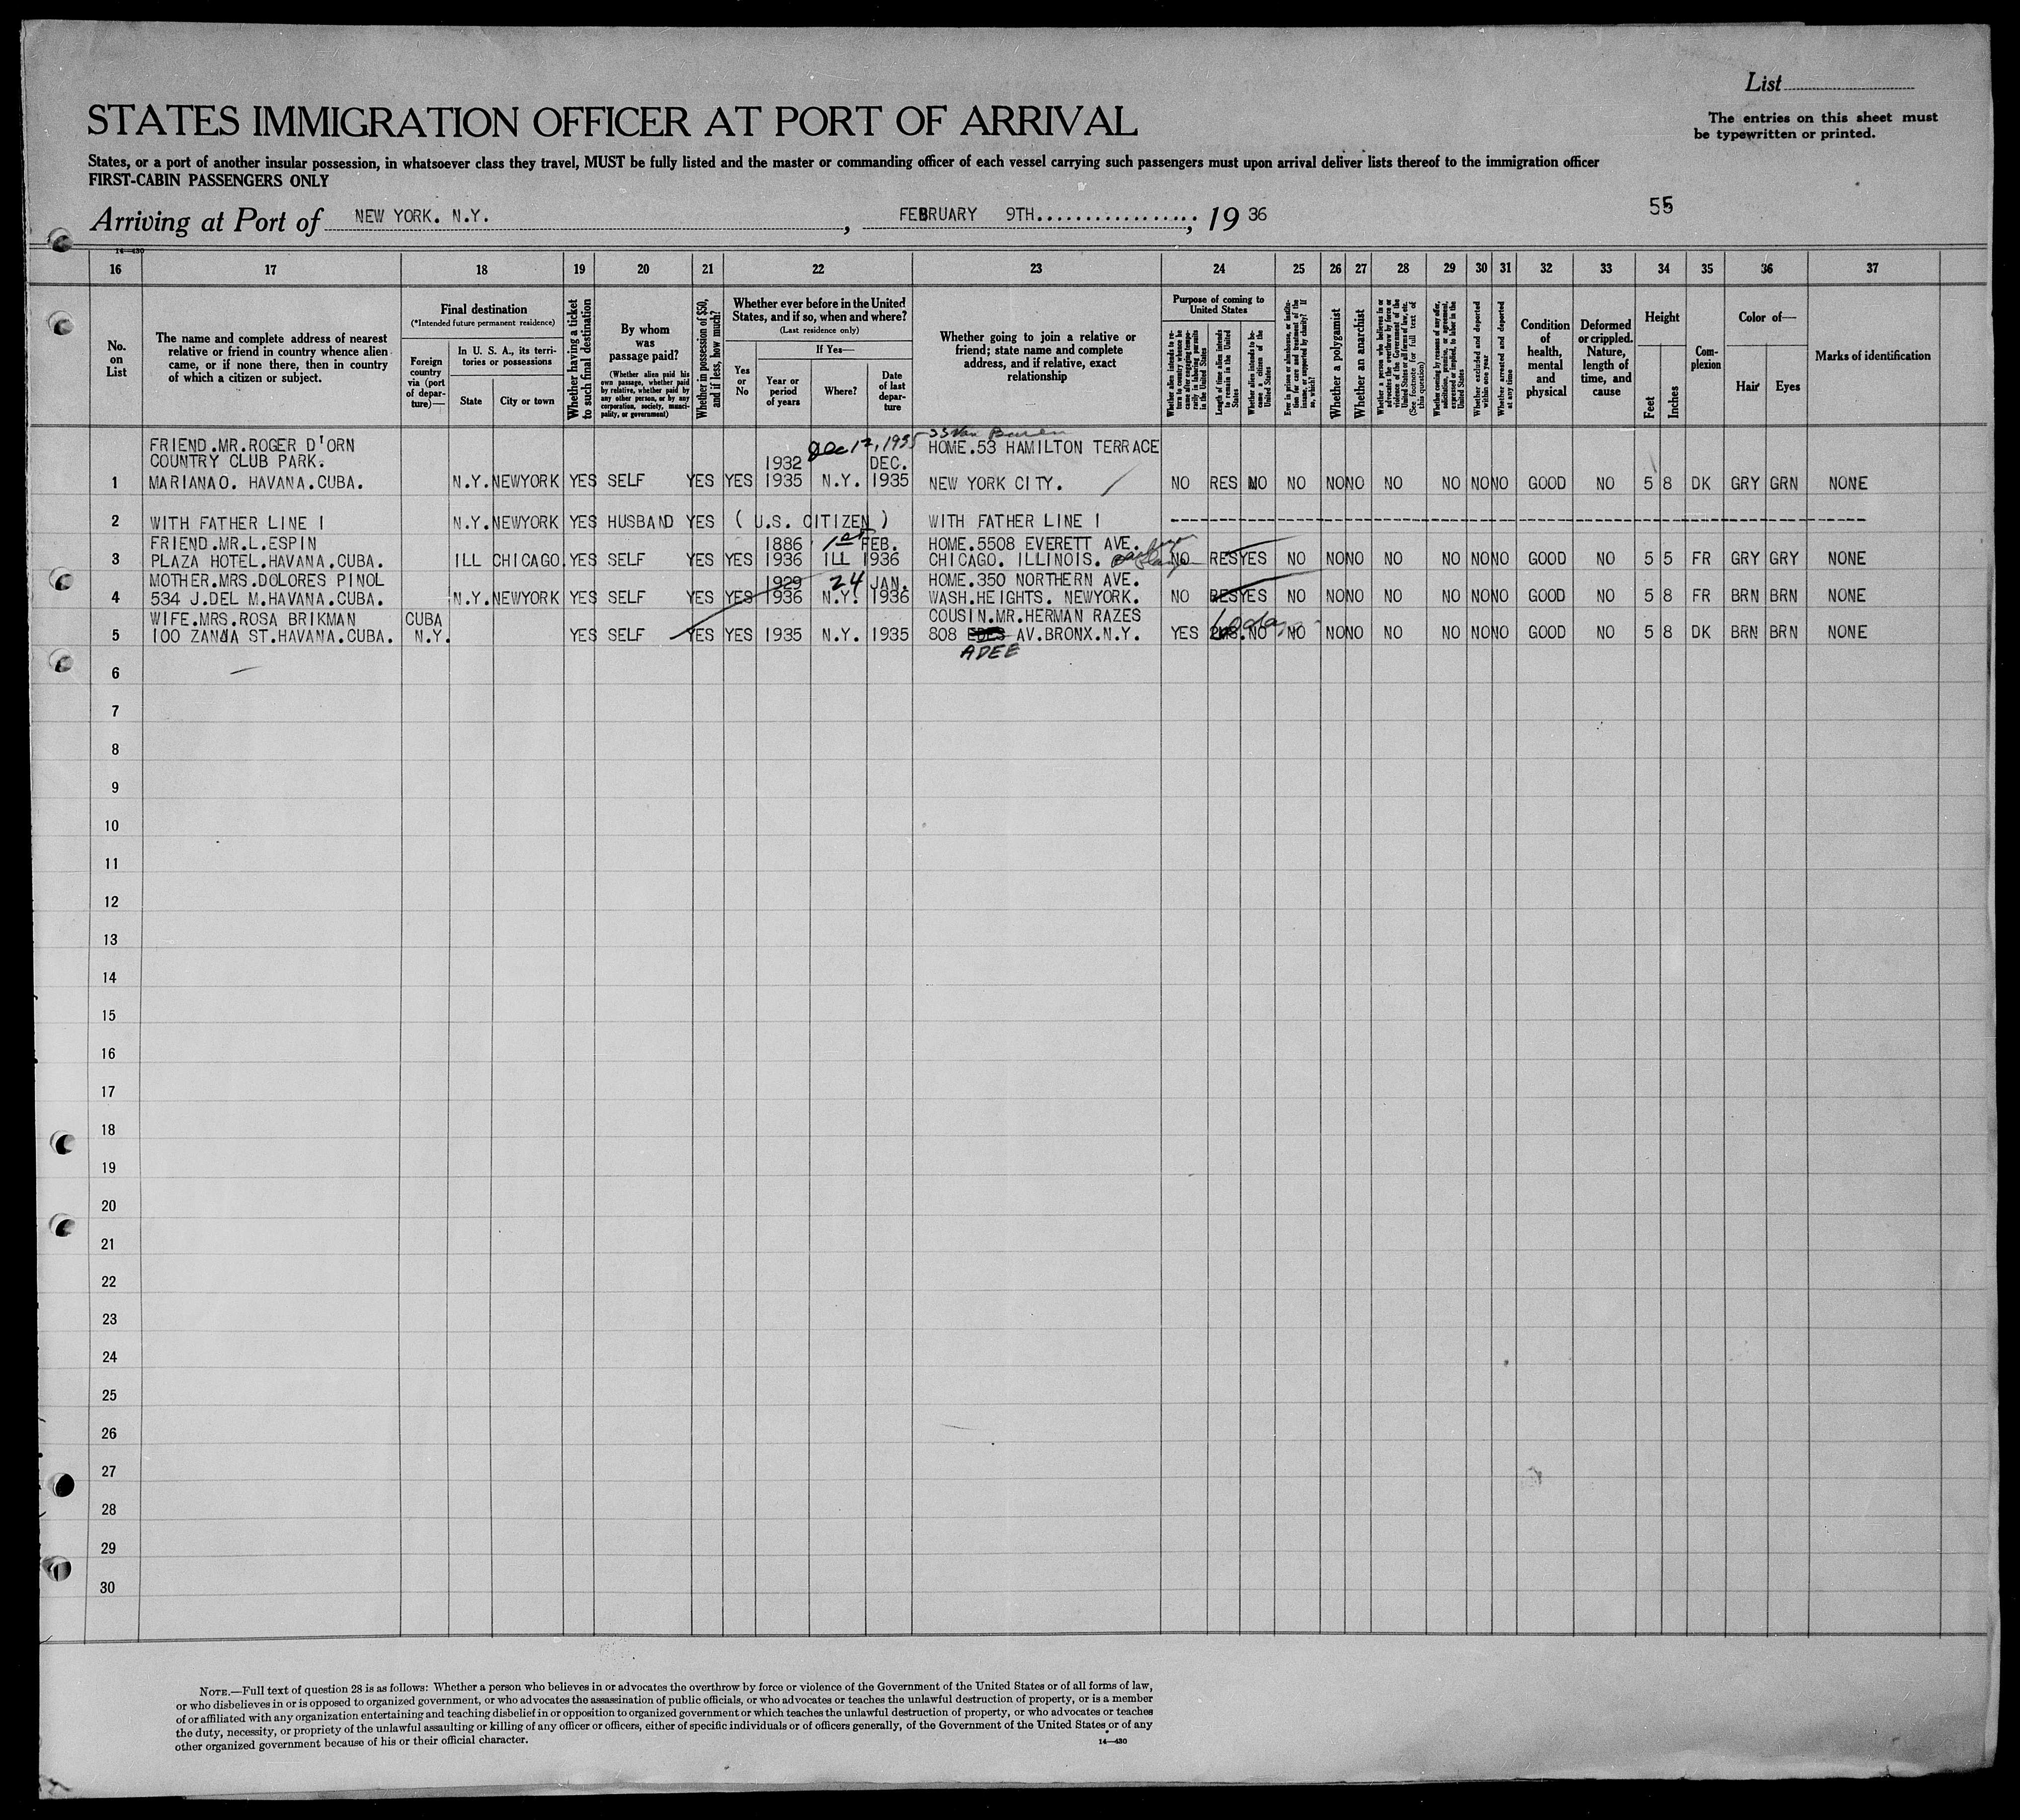 List
STATES IMMIGRATION OFFICER AT PORT OF ARRIVAL
The entries on this sheet must
be typewritten or printed.
States, or a port of another insular possession, in whatsoever class they travel, MUST be fully listed and the master or commanding officer of each vessel carrying such passengers must upon arrival deliver lists thereof to the immigration officer
FIRST-CABIN PASSENGERS ONLY
55
Arriving at Port of NEW YORK. N.Y. , FEBRUARY 9TH................., 19 36
14—430
16 17 18 19 20 21 22 23 24 25 26 27 28 29 30 31 32 33 34 35 36 37
No.
on
List
The name and complete address of nearest
relative or friend in country whence alien
came, or if none there, then in country
of which a citizen or subject.
Final destination
(*Intended future permanent residence)
Foreign
country
via (port
of depar-
ture)—
In U. S. A., its terri-
tories or possessions
State City or town
Whether having a ticket
to such final destination
By whom
was
passage paid?
(Whether alien paid his
own passage, whether paid
by relative, whether paid by
any other person, or by any
corporation, society, munici-
pality, or government)
Whether in possession of $50,
and if less, how much?
Whether ever before in the United
States, and if so, when and where?
(Last residence only)
If Yes—
Yes
or
No
Year or
period
of years
Where?
Date
of last
depar-
ture
Whether going to join a relative or
friend; state name and complete
address, and if relative, exact
relationship
Purpose of coming to
United States
Whether alien intends to re-
turn to country whence he
came after engaging tempo-
rarily in laboring pursuits
in the United States
Length of time alien intends
to remain in the United
States
Whether alien intends to be-
come a citizen of the
United States
Ever in prison or almshouse, or institu-
tion for care and treatment of the
insane, or supported by charity? If
so, which?
Whether a polygamist
Whether an anarchist
Whether a person who believes in or
advocates the overthrow by force or
violence of the Government of the
United States or all forms of law, etc.
(See footnote for full text of
this question)
Whether coming by reasons of any offer,
solicitation, promise, or agreement,
expressed or implied, to labor in the
United States
Whether excluded and deported
within one year
Whether arrested and deported
at any time
Condition
of
health,
mental
and
physical
Deformed
or crippled.
Nature,
length of
time, and
cause
Height
Feet
Inches
Com-
plexion
Color of—
Hair Eyes
Marks of identification
FRIEND.MR.ROGER D'ORN Dec 17, 1935 HOME.53 HAMILTON TERRACE
COUNTRY CLUB PARK. 1932 DEC.
1 MARIANAO. HAVANA.CUBA. N.Y. NEWYORK YES SELF YES YES 1935 N.Y. 1935 NEW YORK CITY. NO RES NO NO NO NO NO NO NO NO GOOD NO 5 8 DK GRY GRN NONE
2 WITH FATHER LINE 1 N.Y. NEWYORK YES HUSBAND YES ( U.S. CITIZEN ) WITH FATHER LINE 1
FRIEND.MR.L.ESPIN 1886 1st FEB. HOME.5508 EVERETT AVE.
3 PLAZA HOTEL.HAVANA.CUBA. ILL CHICAGO. YES SELF YES YES 1936 ILL 1936 CHICAGO. ILLINOIS. NO RES YES NO NO NO NO NO NO NO GOOD NO 5 5 FR GRY GRY NONE
MOTHER.MRS.DOLORES PINOL 1929 24 JAN. HOME.350 NORTHERN AVE.
4 534 J.DEL M.HAVANA.CUBA. N.Y. NEWYORK YES SELF YES YES 1936 N.Y. 1936 WASH.HEIGHTS. NEWYORK. NO RES YES NO NO NO NO NO NO NO GOOD NO 5 8 FR BRN BRN NONE
WIFE.MRS.ROSA BRIKMAN CUBA COUSIN.MR.HERMAN RAZES
5 100 ZANJA ST.HAVANA.CUBA. N.Y. YES SELF YES YES 1935 N.Y. 1935 808 AV.BRONX.N.Y. YES NO NO NO NO NO NO NO NO GOOD NO 5 8 DK BRN BRN NONE
ADEE
6
7
8
9
10
11
12
13
14
15
16
17
18
19
20
21
22
23
24
25
26
27
28
29
30
NOTE.—Full text of question 28 is as follows: Whether a person who believes in or advocates the overthrow by force or violence of the Government of the United States or of all forms of law,
or who disbelieves in or is opposed to organized government, or who advocates the assassination of public officials, or who advocates or teaches the unlawful destruction of property, or is a member
of or affiliated with any organization entertaining and teaching disbelief in or opposition to organized government or which teaches the unlawful destruction of property, or who advocates or teaches
the duty, necessity, or propriety of the unlawful assaulting or killing of any officer or officers, either of specific individuals or of officers generally, of the Government of the United States or of any
other organized government because of his or their official character.
14—430